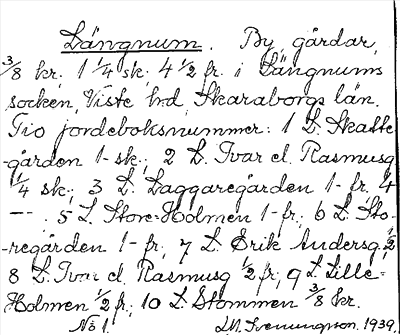 Längnum. By, gårdar,
3/8 kr. 1 1/4 sk. 4 1/2 fr. i Längnums
socken, Viste hd, Skaraborgs län.
Tio jordeboksnummer: 1 L. Skatte-
-gården 1- sk.; 2 L. Ivar el. Rasmusg
1/4 sk.; 3 L. Laggaregården 1- fr. 4
- - . 5 L. Store-Holmen 1- fr.; 6 L. Sto-
-regården 1- fr. 7 L. Erik Andersg. 1/2
8 L. Ivar el. Rasmusg 1/2 fr; 9 L. Lille-
Holmen 1/2 fr.; 10 L. Stommen 3/8 kr.
No 1. 1939.